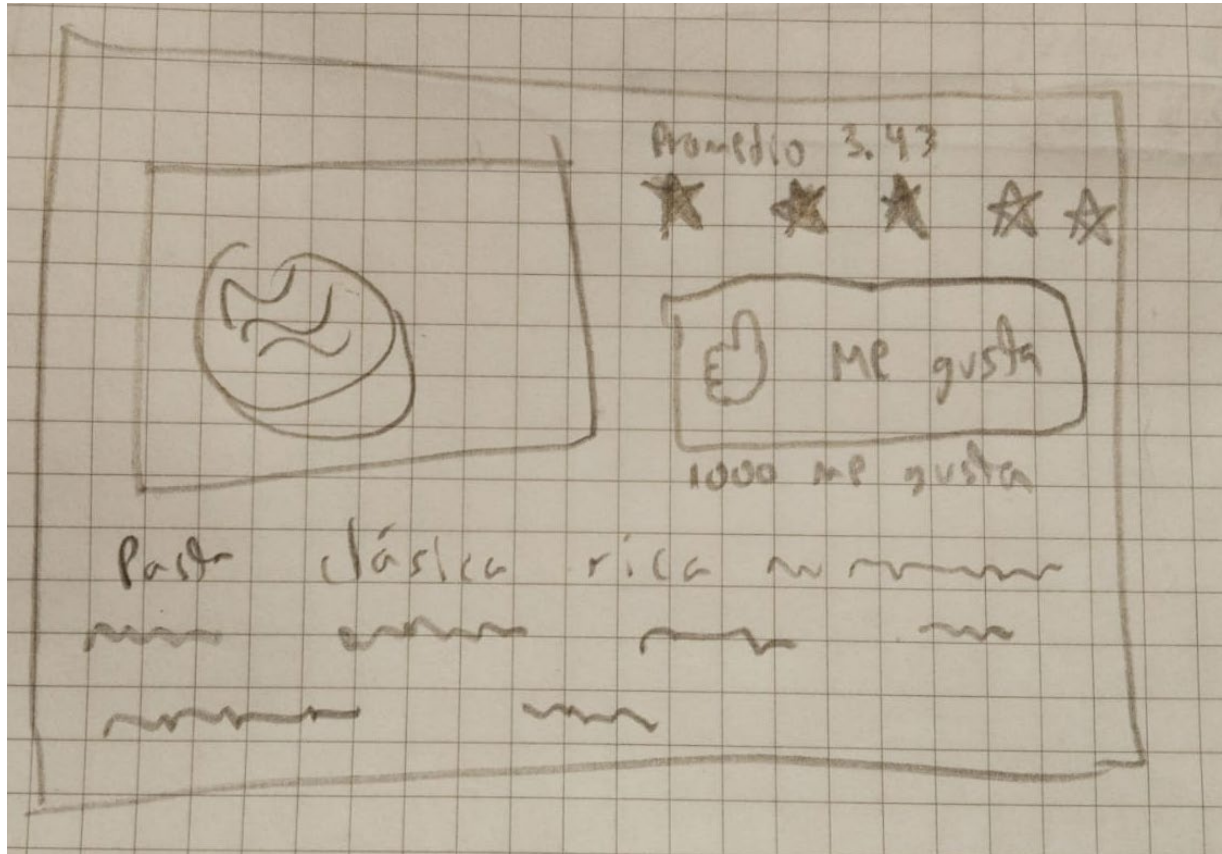 Promedio 3.43
Me gusta
1000 me gusta
Pasta clásica rica